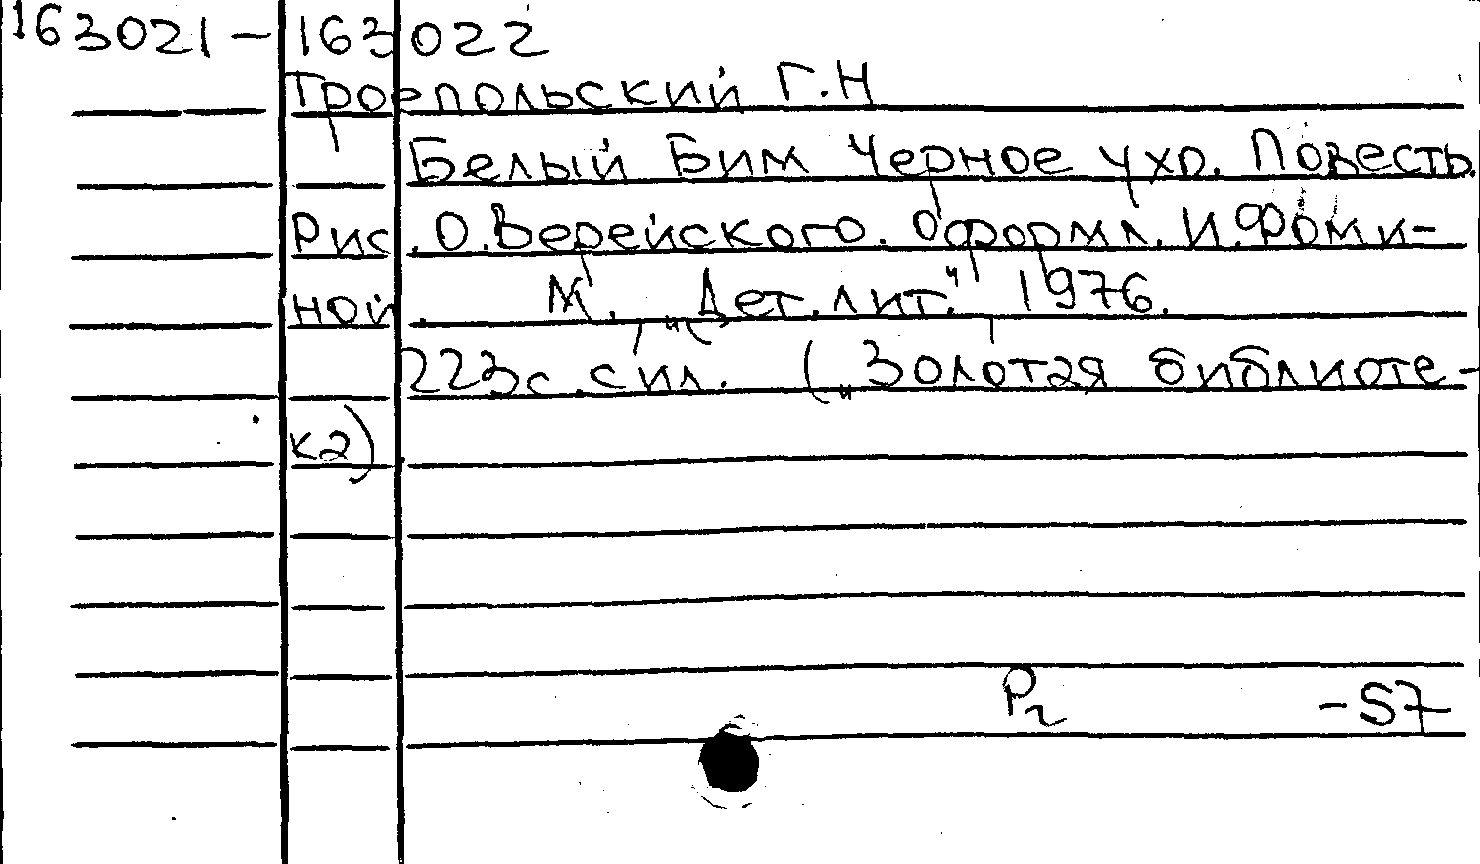 163021 - 163022
Троепольский Г.Н
Белый Бим Черное ухо. Повесть.
Рис. О.Верейского. Оформл. И.Фоми-
ной. М. „Дет.лит." 1976.
223с.сил. („Золотая библиоте-
ка)
Р2 -57